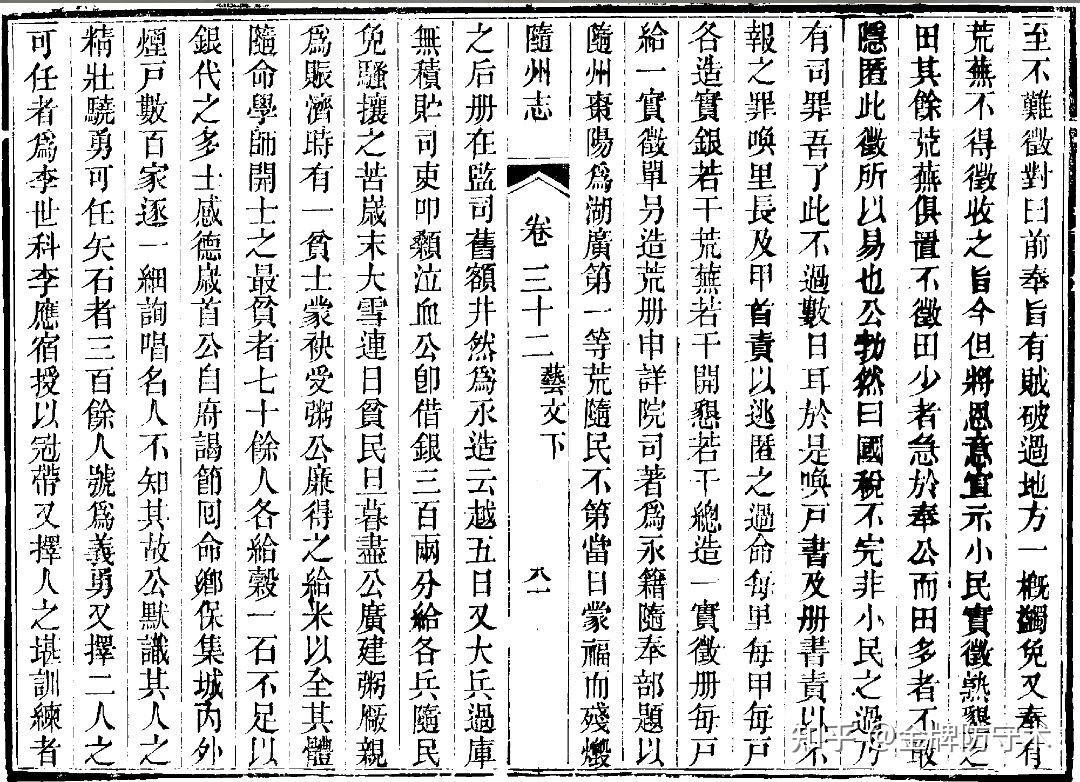 至不難徵對曰前奉旨有賊破過地方一槪蠲免又奉有
荒蕪不得徵收之旨今但將恩意宣示小民實徵熟墾之
田其餘荒蕪俱置不徵田少者急於奉公而田多者不敢
隱匿此徵所以易也公勃然曰國稅不完非小民之過乃
有司罪吾了此不過數日耳於是喚戶書及册書責以不
報之罪喚里長及甲首責以逃匿之過命每里每甲每戶
各造實銀若干荒蕪若干開懇若干總造一實徵册每戶
給一實徵單另造荒册申詳院司著爲永籍隨奉部題以
隨州棗陽爲湖廣第一等荒隨民不第當日蒙福而殘燬
隨州志 卷三十二 藝文下 八一
之后册在監司舊額井然爲永造云越五日又大兵過庫
無積貯司吏叩顙泣血公卽借銀三百兩分給各兵隨民
免騷攘之苦嵗末大雪連日貧民旦暮盡公廣建粥厰親
爲賑濟時有一貧士蒙袂受粥公廉得之給米以至其體
隨命學師開士之最貧者七十餘人各給穀一石不足以
銀代之多士感德嵗首公自府謁節囘命鄉保集城內外
煙戶數百家逐一細詢唱名人不知其故公默識其人之
精壯驍勇可任矢石者三百餘人號爲義勇又擇二人之
可任者爲李世科李應宿授以冠帶又擇人之堪訓練者
知乎 @金牌防守木